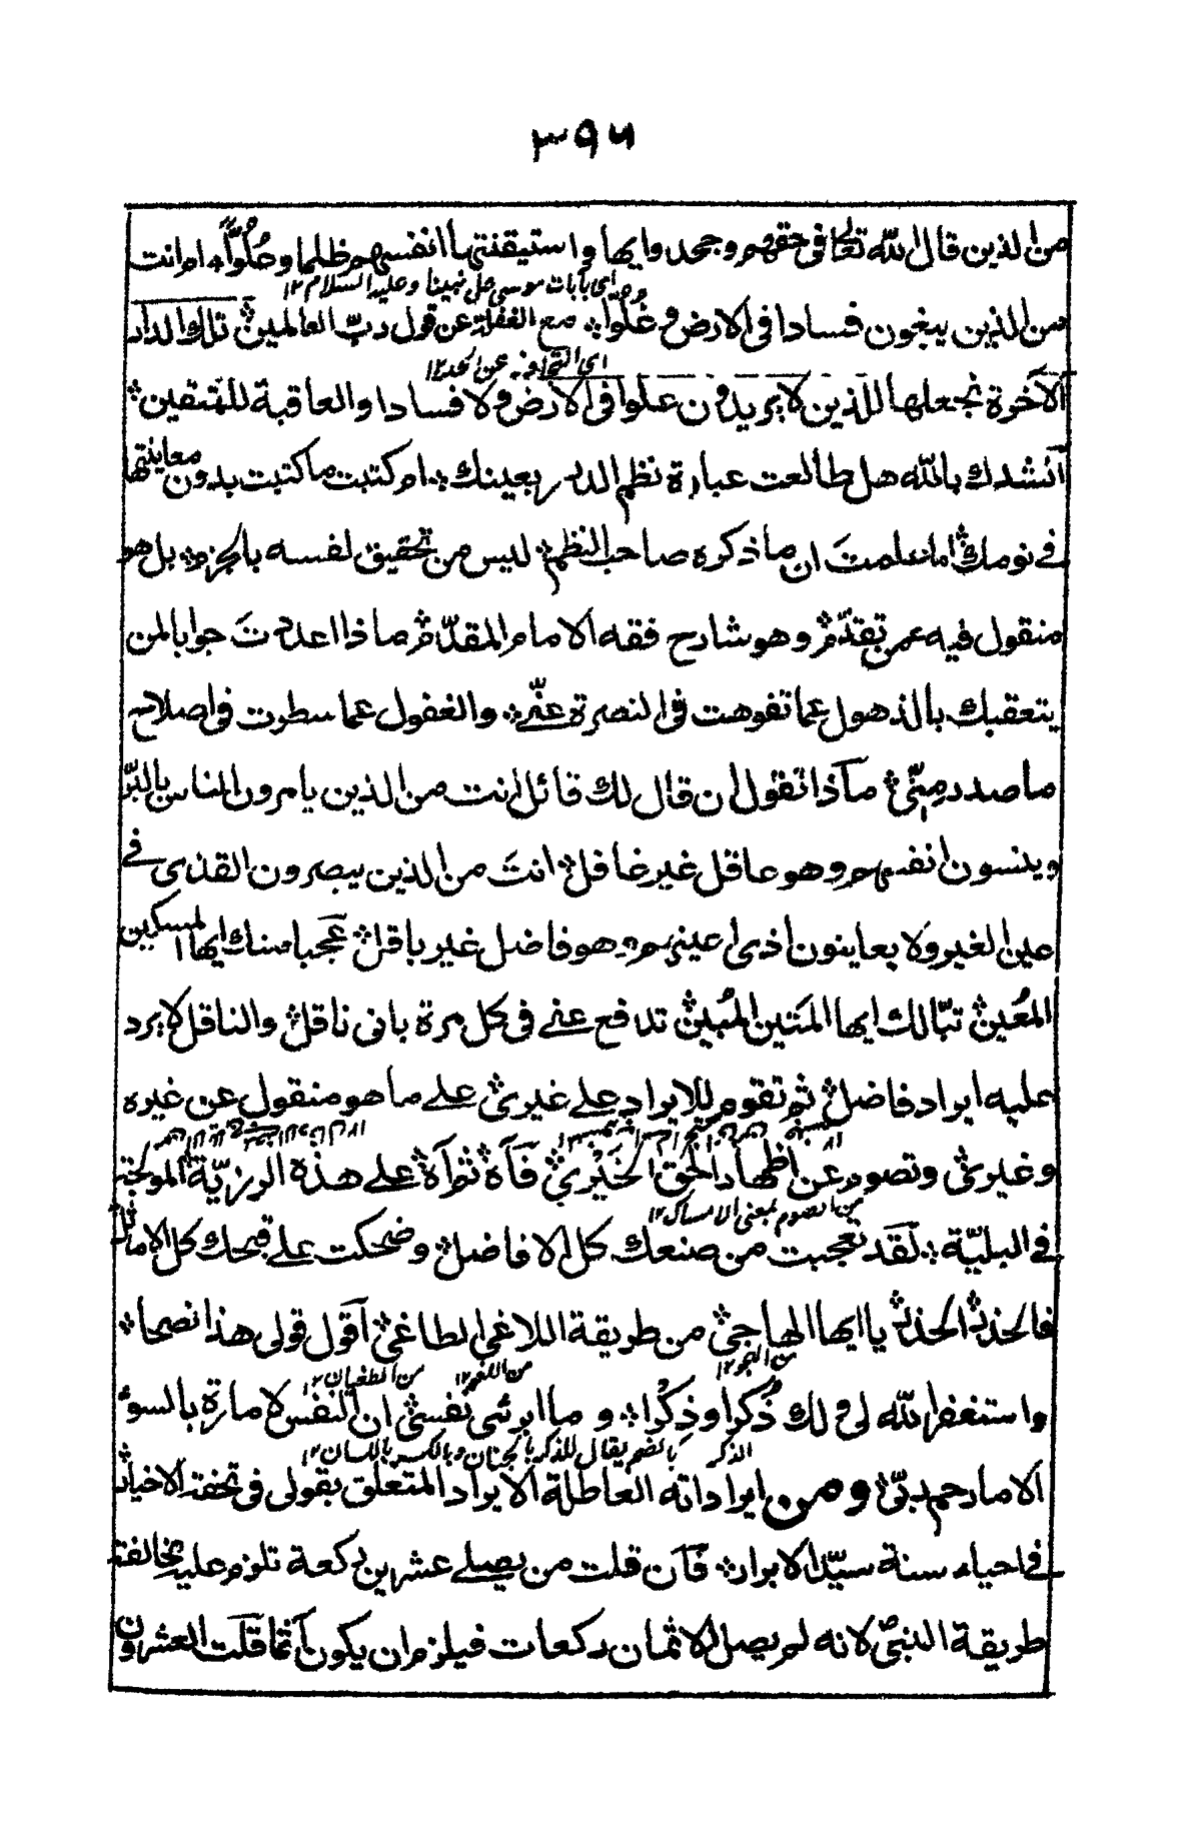 ٣٩٦
من الذين قال الله تعالى فى حقهم وجحدوا بها واستيقنتها انفسهم ظلما وعُلُوًّا ام انت
اى بآيات موسى على نبينا وعليه السلام ١٢
من الذين يبغون فسادا فى الارض وغُلُوًّا مع الغفلة عن قول ربّ العالمين تلك الدار
اى التجاوز عن الحد ١٢
الآخرة نجعلها للذين لا يريدون علوا فى الارض ولا فسادا والعاقبة للمتقين
آنشدك بالله هل طالعت عبارة نظم الدرر بعينك ام كتبت ما كتبت بدون معاينتها
فى نومك اما علمتَ ان ما ذكره صاحب النظم ليس من تحقيق لفسه بالجزم بل هو
منقول فيه عمن تقدّم وهو شارح فقه الامام المقدّم ما ذا اعددتَ جوابا لمن
يتعقبك بالذهول عما تفوهت فى النصرة عنّى والغفول عما سطرت فى اصلاح
ما صدر مِنّى مآذا تقول ان قال لك قائل انت من الذين يامرون الناس بالبرّ
وينسون انفسهم وهو عاقل غير غافل انتَ من الذين يبصرون القذى فى
عين الغير ولا يعاينون اذى اعينهم وهو فاضل غير باقل عَجبا منك ايها المسكين
المُعين تبّا لك ايها المَتين المُبين تدفع عنى فى كل مرة بانى ناقل والناقل لا يرد
عليه ايراد فاضل ثم تقوم للايراد على غيرى على ما هو منقول عن غيره
وغيرى وتصوم عن اظهار الحق الخَيْرى فآه ثم آه على هذه الرزيّة الموقعة
من الصوم بمعنى الامساك ١٢
فى البليّة لَقَد تعجبت من صنعك كل الافاضل وضحكت على قبحك كل الاماثل
فالحذر الحذر يا ايها الهاجى من طريقة اللاغى الطاغى آقول قولى هذا نصحا
من الهجو ١٢ من اللغو ١٢ من الطغيان ١٢
واستغفر الله لى ولك ذُكْرا وذِكْرا وما ابرئ نفسى ان النفس لامارة بالسوء
الذكر بالضم يقال للذكر بالجنان وبالكسر باللسان ١٢
الا ما رحم ربّى ومن ايراداته العاطلة الايراد المتعلق بقولى فى تحفة الاخيار
فى احياء سنة سيّد الابرار فآن قلت من يصلى عشرين ركعة تلزم عليه مخالفة
طريقة النبىّ لانه لم يصل الا ثمان ركعات فيلزم ان يكون آثما قلت العشرون